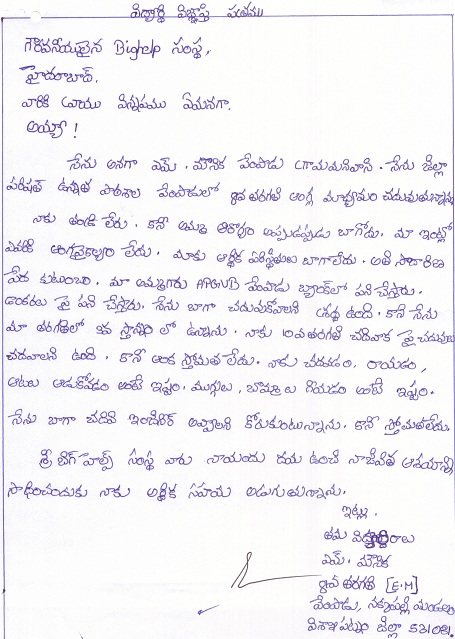 విద్యార్థి విజ్ఞప్తి పత్రము
గౌరవనీయులైన Bighelp సంస్థ,
హైదరాబాద్.
వారికి వ్రాయు విన్నపము ఏమనగా.
అయ్యా !
నేను అనగా ఎమ్. మౌనిక పేంపాడు గ్రామనివాసి. నేను జిల్లా
పరిషత్ ఉన్నత పాఠశాల పేంపాడులో తరగతి ఆంగ్ల మాధ్యమం చదువుతున్నాను
నాకు తండ్రి లేరు. కానీ అమ్మ ఆరోగ్యం అప్పుడప్పుడు బాగోదు. మా ఇంట్లో
ఎవరికి అంగవైకల్యం లేదు. మాకు ఆర్థిక పరిస్థితులు బాగాలేదు. అతి సాధారణ
పేద కుటుంబం. మా అమ్మగారు APGVB పేంపాడు బ్యాంక్‌లో పని చేస్తారు.
పై పని చేస్తారు. నేను బాగా చదువుకోవాలని శ్రద్ధ ఉంది. కానీ నేను
మా తరగతిలో ఇవ స్థానం లో ఉన్నాను. నాకు 10వ తరగతి చదివాక పై చదువులు
చదవాలని ఉంది. కానీ అంత స్తోమత లేదు. నాకు చదవడం, రాయడం,
ఆటలు ఆడుకోవడం అంటే ఇష్టం. ముగ్గులు, బొమ్మలు గీయడం అంటే ఇష్టం.
నేను బాగా చదివి ఇంజినీర్ అవ్వాలని కోరుకుంటున్నాను. కానీ స్తోమతలేదు.
శ్రీ బిగ్ హెల్ప్ సంస్థ వారు నాయందు దయ ఉంచి నాజీవిత ఆశయాన్ని
సాధించుటకు నాకు ఆర్థిక సహాయం అడుగుతున్నాను.
ఇట్లు.
తమ విద్యార్థిరాలు
ఎమ్. మౌనిక
తరగతి [E.M]
పేంపాడు, నక్కపల్లి మండలం
విశాఖపట్నం జిల్లా 531081.